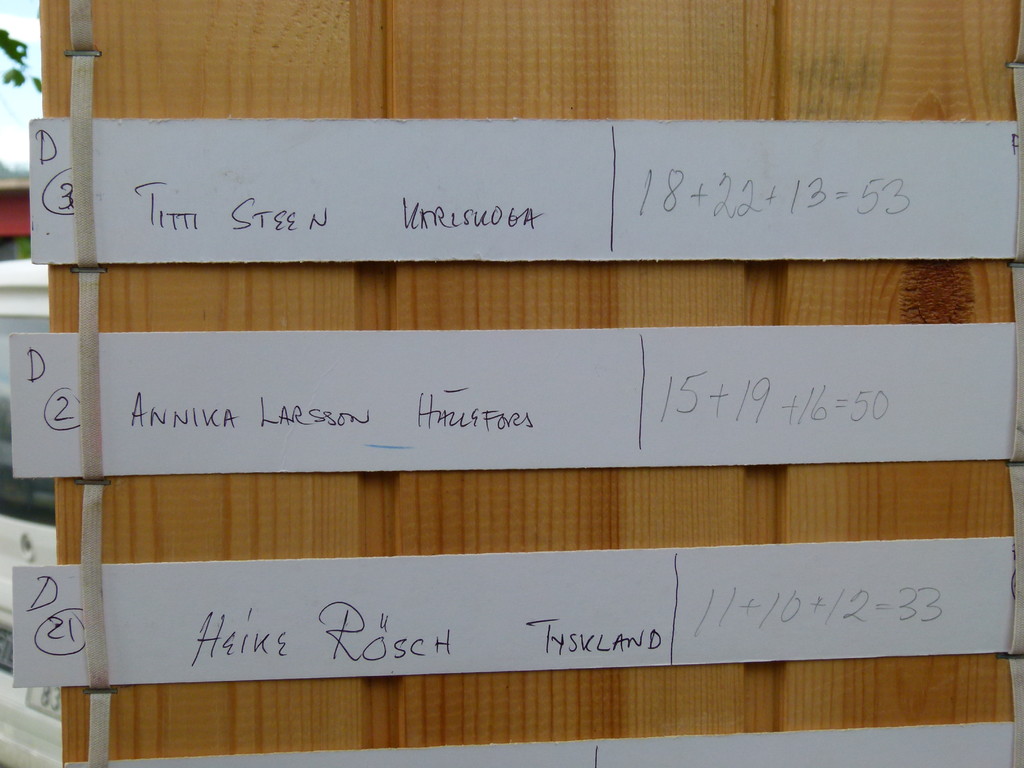 D
3 TITTI STEEN KARLSKOGA 18+22+13=53
D
2 ANNIKA LARSSON HÄLLEFORS 15+19+16=50
D
21 HEIKE RÖSCH TYSKLAND 11+10+12=33